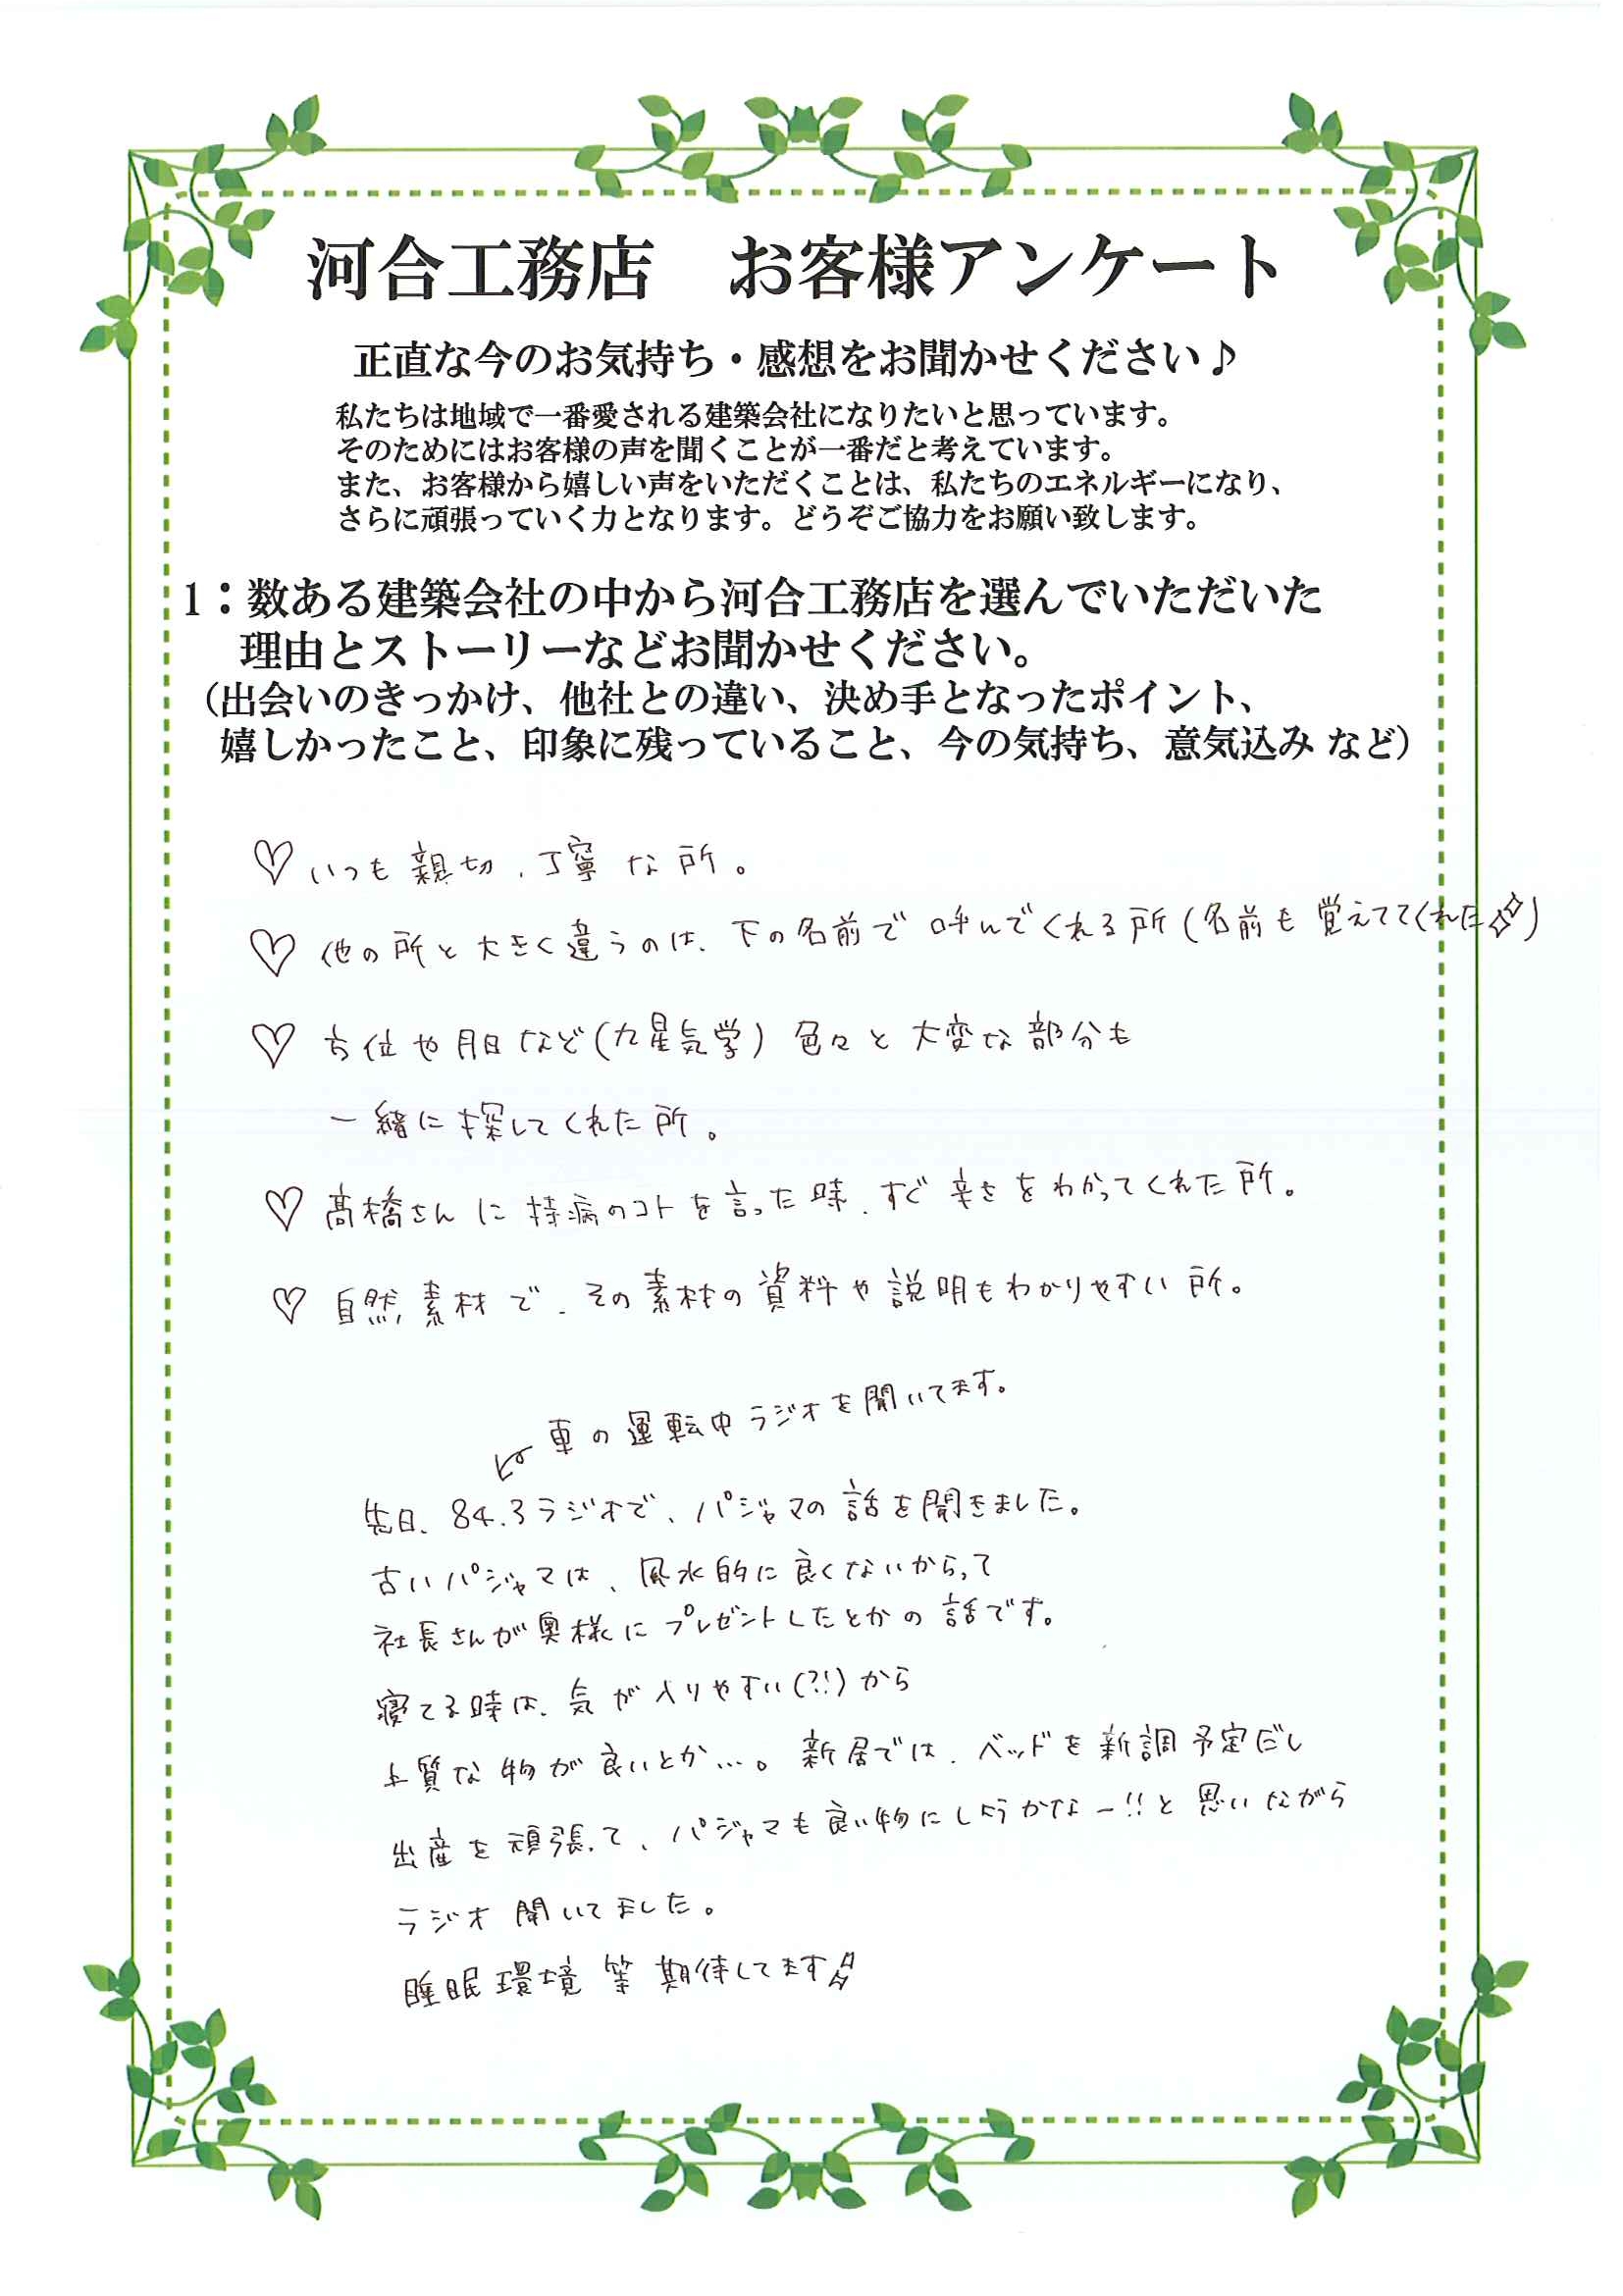 河合工務店　お客様アンケート
正直な今のお気持ち・感想をお聞かせください♪
私たちは地域で一番愛される建築会社になりたいと思っています。
そのためにはお客様の声を聞くことが一番だと考えています。
また、お客様から嬉しい声をいただくことは、私たちのエネルギーになり、
さらに頑張っていく力となります。どうぞご協力をお願い致します。
1：数ある建築会社の中から河合工務店を選んでいただいた
理由とストーリーなどお聞かせください。
（出会いのきっかけ、他社との違い、決め手となったポイント、
嬉しかったこと、印象に残っていること、今の気持ち、意気込み など）
♡いつも親切、丁寧な所。
♡他の所と大きく違うのは、下の名前で呼んでくれる所(名前も覚えててくれた)
♡方位や月日など(九星気学)色々と大変な部分も
一緒に探してくれた所。
♡髙橋さんに持病のコトを言った時、すぐ辛さをわかってくれた所。
♡自然素材で、その素材の資料や説明もわかりやすい所。
車の運転中ラジオを聞いてます。
先日、84.3ラジオで、パジャマの話を聞きました。
古いパジャマは、風水的に良くないからって
社長さんが奥様にプレゼントしたとかの話です。
寝てる時は、気が入りやすい(?!)から
上質な物が良いとか…。新居では、ベッドを新調予定だし
出産を頑張って、パジャマも良い物にしようかなー!!と思いながら
ラジオ聞いてました。
睡眠環境等期待してます